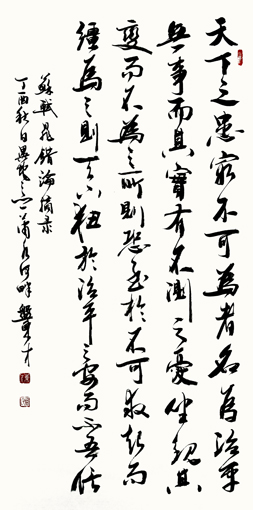 天下之患最不可為者名為治平
無事而其實有不測之憂坐觀其
變而不為之所則恐至於不可救起而
強為之則天下狃於治平之安而不吾信
蘇軾晁錯論摘录
丁酉秋日河畔